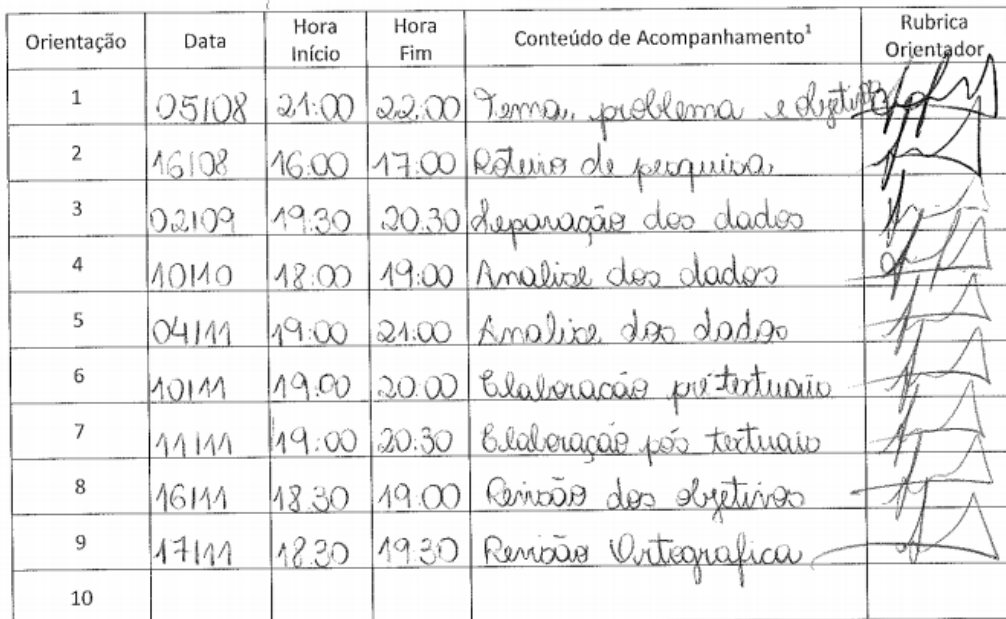 Orientação Data Hora Início Hora Fim Conteúdo de Acompanhamento¹ Rubrica Orientador
1 05/08 21:00 22:00 Tema, problema e objetivos
2 16/08 16:00 17:00 Roteiro de pesquisa
3 02/09 19:30 20:30 Separação dos dados
4 10/10 18:00 19:00 Analise dos dados
5 04/11 19:00 21:00 Analise dos dados
6 10/11 19:00 20:00 Elaboração pré-textuais
7 11/11 19:00 20:30 Elaboração pós textuais
8 16/11 18:30 19:00 Revisão dos objetivos
9 17/11 18:30 19:30 Revisão Ortografica
10